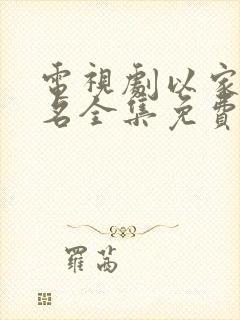 電視劇以家
名全集免費
羅茜